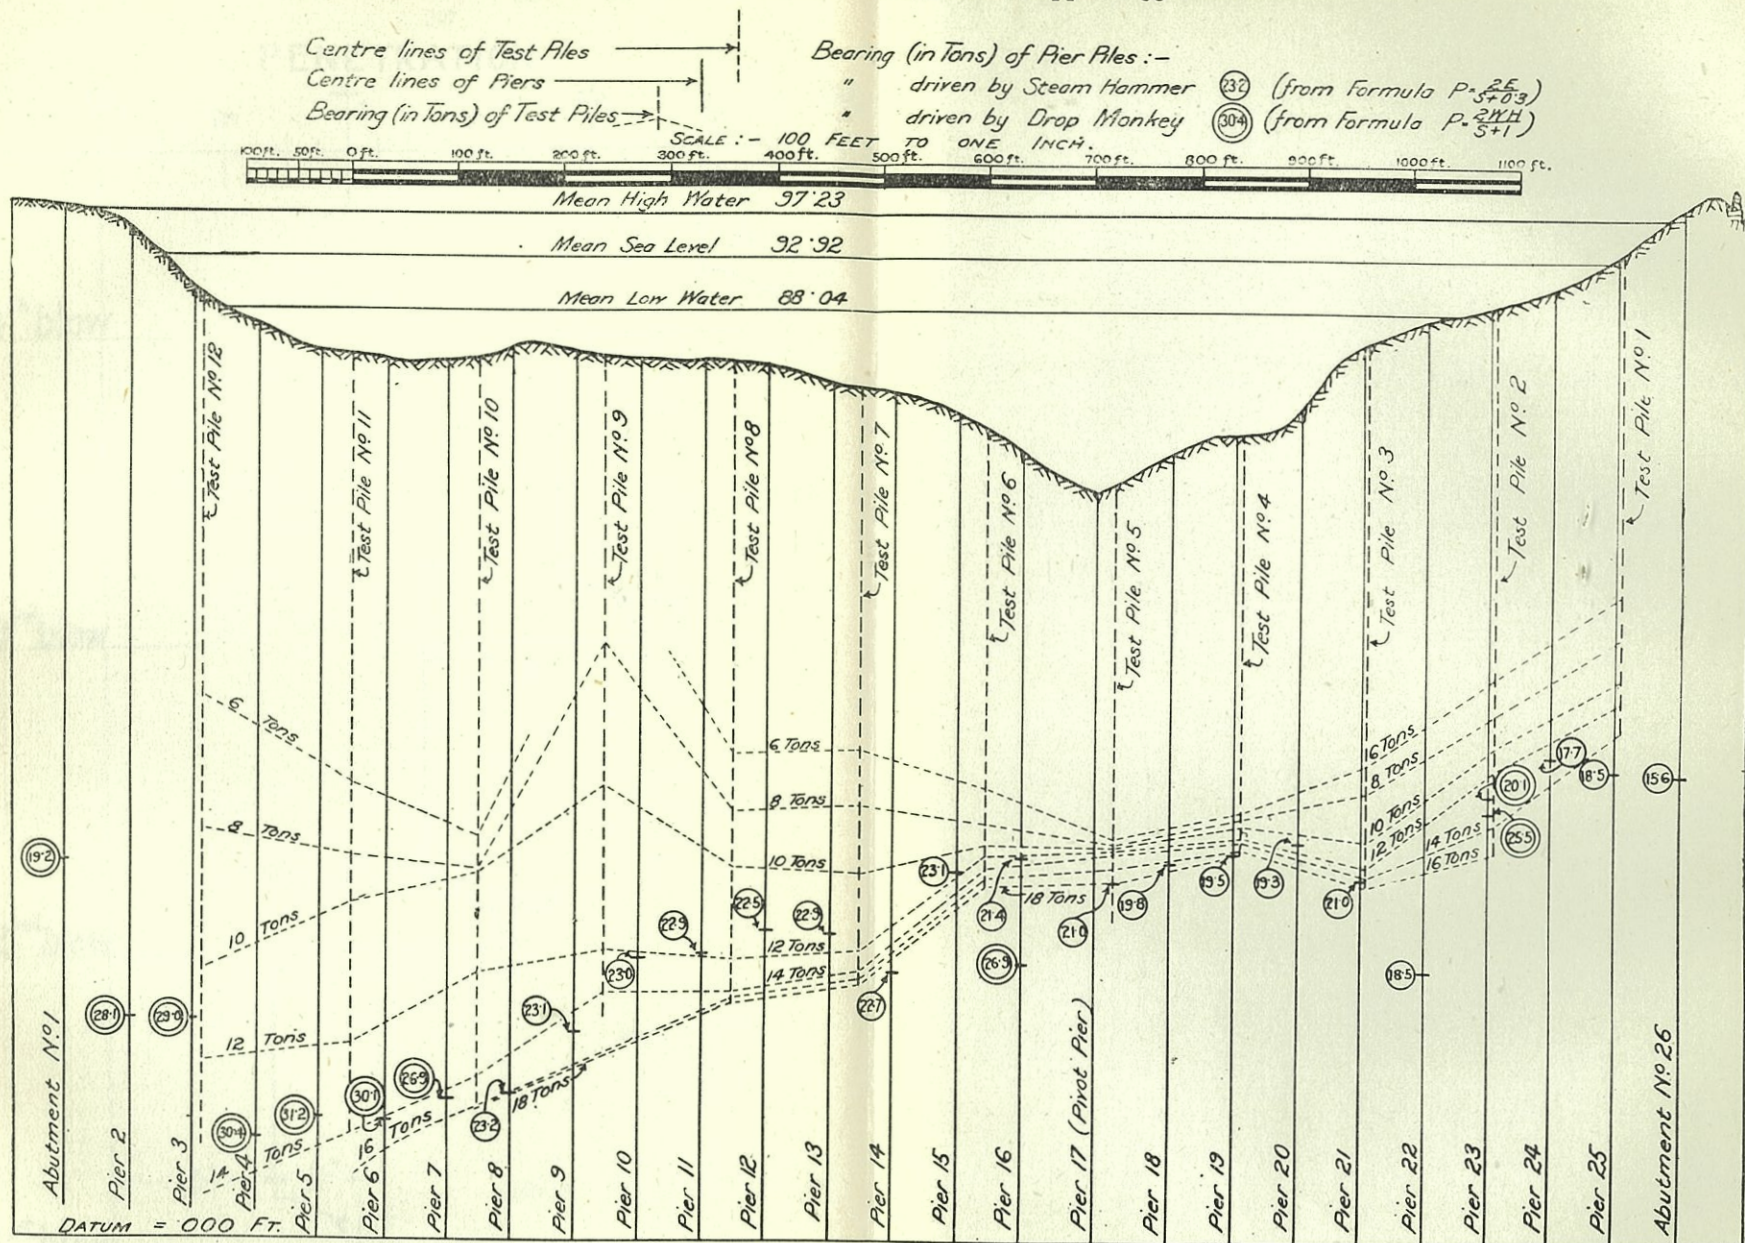 Centre lines of Test Piles
Centre lines of Piers
Bearing (in Tons) of Test Piles
Bearing (in Tons) of Pier Piles :-
" driven by Steam Hammer 23·2 (from Formula P = 2E/S+0·3)
" driven by Drop Monkey 30·4 (from Formula P = 2WH/S+1)
SCALE :- 100 FEET TO ONE INCH.
100ft. 50ft. 0ft. 100ft. 200ft. 300ft. 400ft. 500ft. 600ft. 700ft. 800ft. 900ft. 1000ft. 1100ft.
Mean High Water 97·23
Mean Sea Level 92·92
Mean Low Water 88·04
Test Pile Nº 12
Test Pile Nº 11
Test Pile Nº 10
Test Pile Nº 9
Test Pile Nº 8
Test Pile Nº 7
Test Pile Nº 6
Test Pile Nº 5
Test Pile Nº 4
Test Pile Nº 3
Test Pile Nº 2
Test Pile Nº 1
6 Tons
8 Tons
10 Tons
12 Tons
14 Tons
16 Tons
18 Tons
6 Tons
8 Tons
10 Tons
12 Tons
14 Tons
18 Tons
6 Tons
8 Tons
10 Tons
12 Tons
14 Tons
16 Tons
19·2
28·1
29·0
30·4
31·2
30·1
26·9
23·2
23·1
23·0
22·9
22·5
22·9
22·7
23·1
21·4
26·9
21·0
19·8
19·5
19·3
21·0
18·5
20·1
25·5
17·7
18·5
15·6
Abutment Nº 1
Pier 2
Pier 3
Pier 4
Pier 5
Pier 6
Pier 7
Pier 8
Pier 9
Pier 10
Pier 11
Pier 12
Pier 13
Pier 14
Pier 15
Pier 16
Pier 17 (Pivot Pier)
Pier 18
Pier 19
Pier 20
Pier 21
Pier 22
Pier 23
Pier 24
Pier 25
Abutment Nº 26
DATUM = ·000 FT.